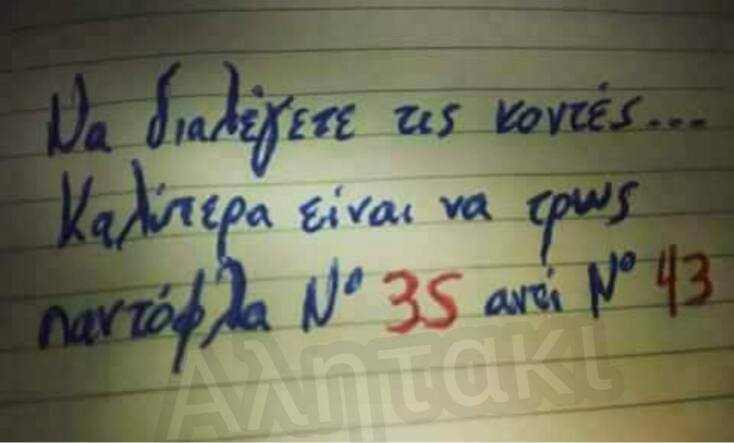 Να διαλέγετε τις κοντές...
Καλύτερα είναι να τρως
παντόφλα Νº 35 αντί Νº 43
Αλητακι